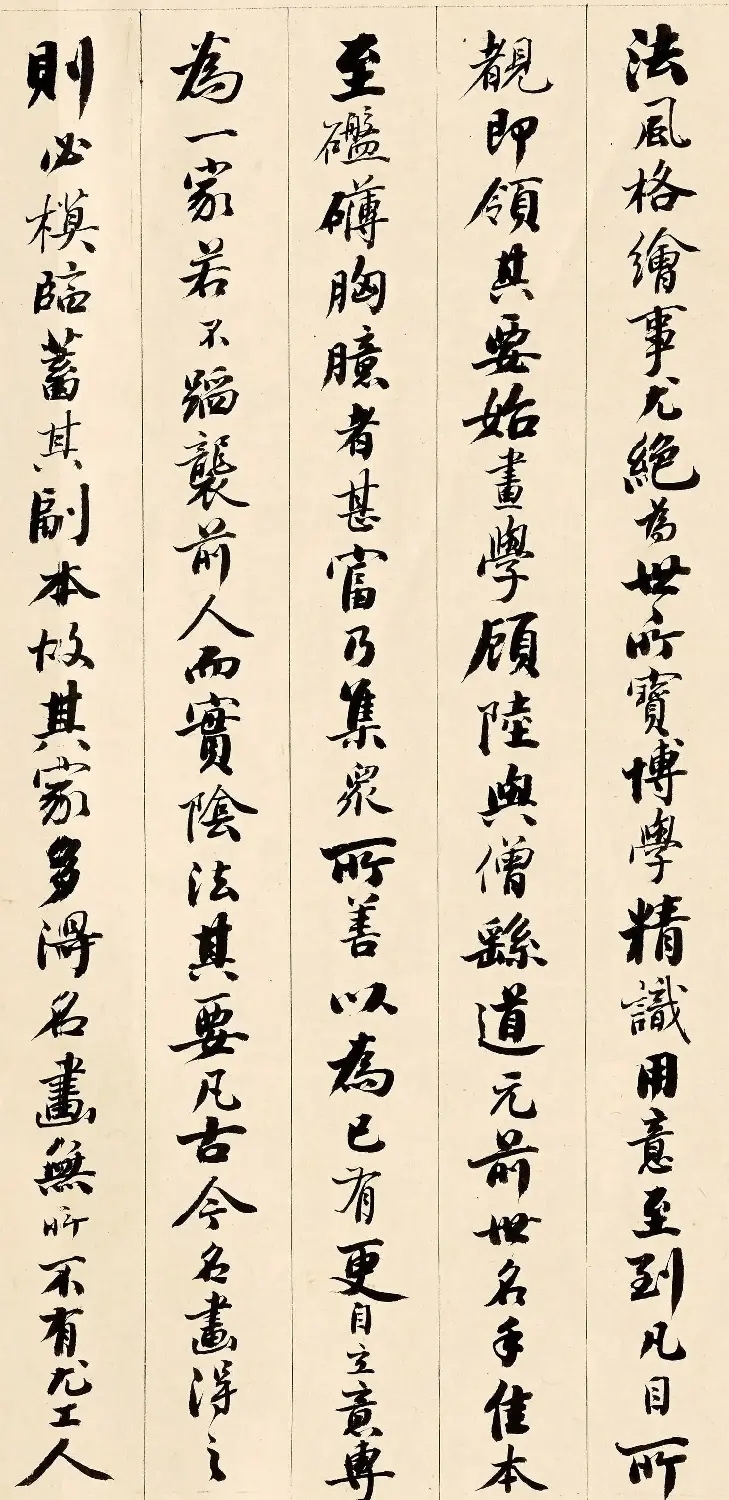 法風格繪事尤絕為世所寶博學精識用意至到凡目所
覩即領其要始畫學顧陸與僧繇道元前世名手佳本
至礛礴胸臆者甚富乃集衆所善以為己有更自立意專
為一家若不蹈襲前人而實陰法其要凡古今名畫得之
則必模臨蓄其副本故其家多得名畫無所不有尤工人